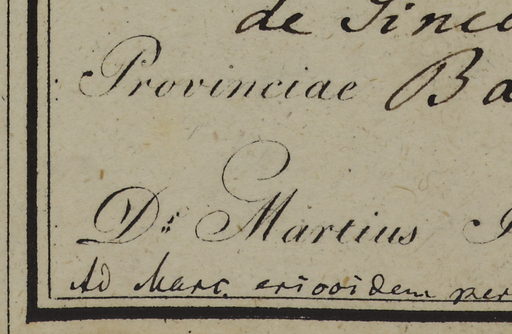 de Sinco
Provinciae Ba
Dr. Martius I
Ad Marc. eriooidem per